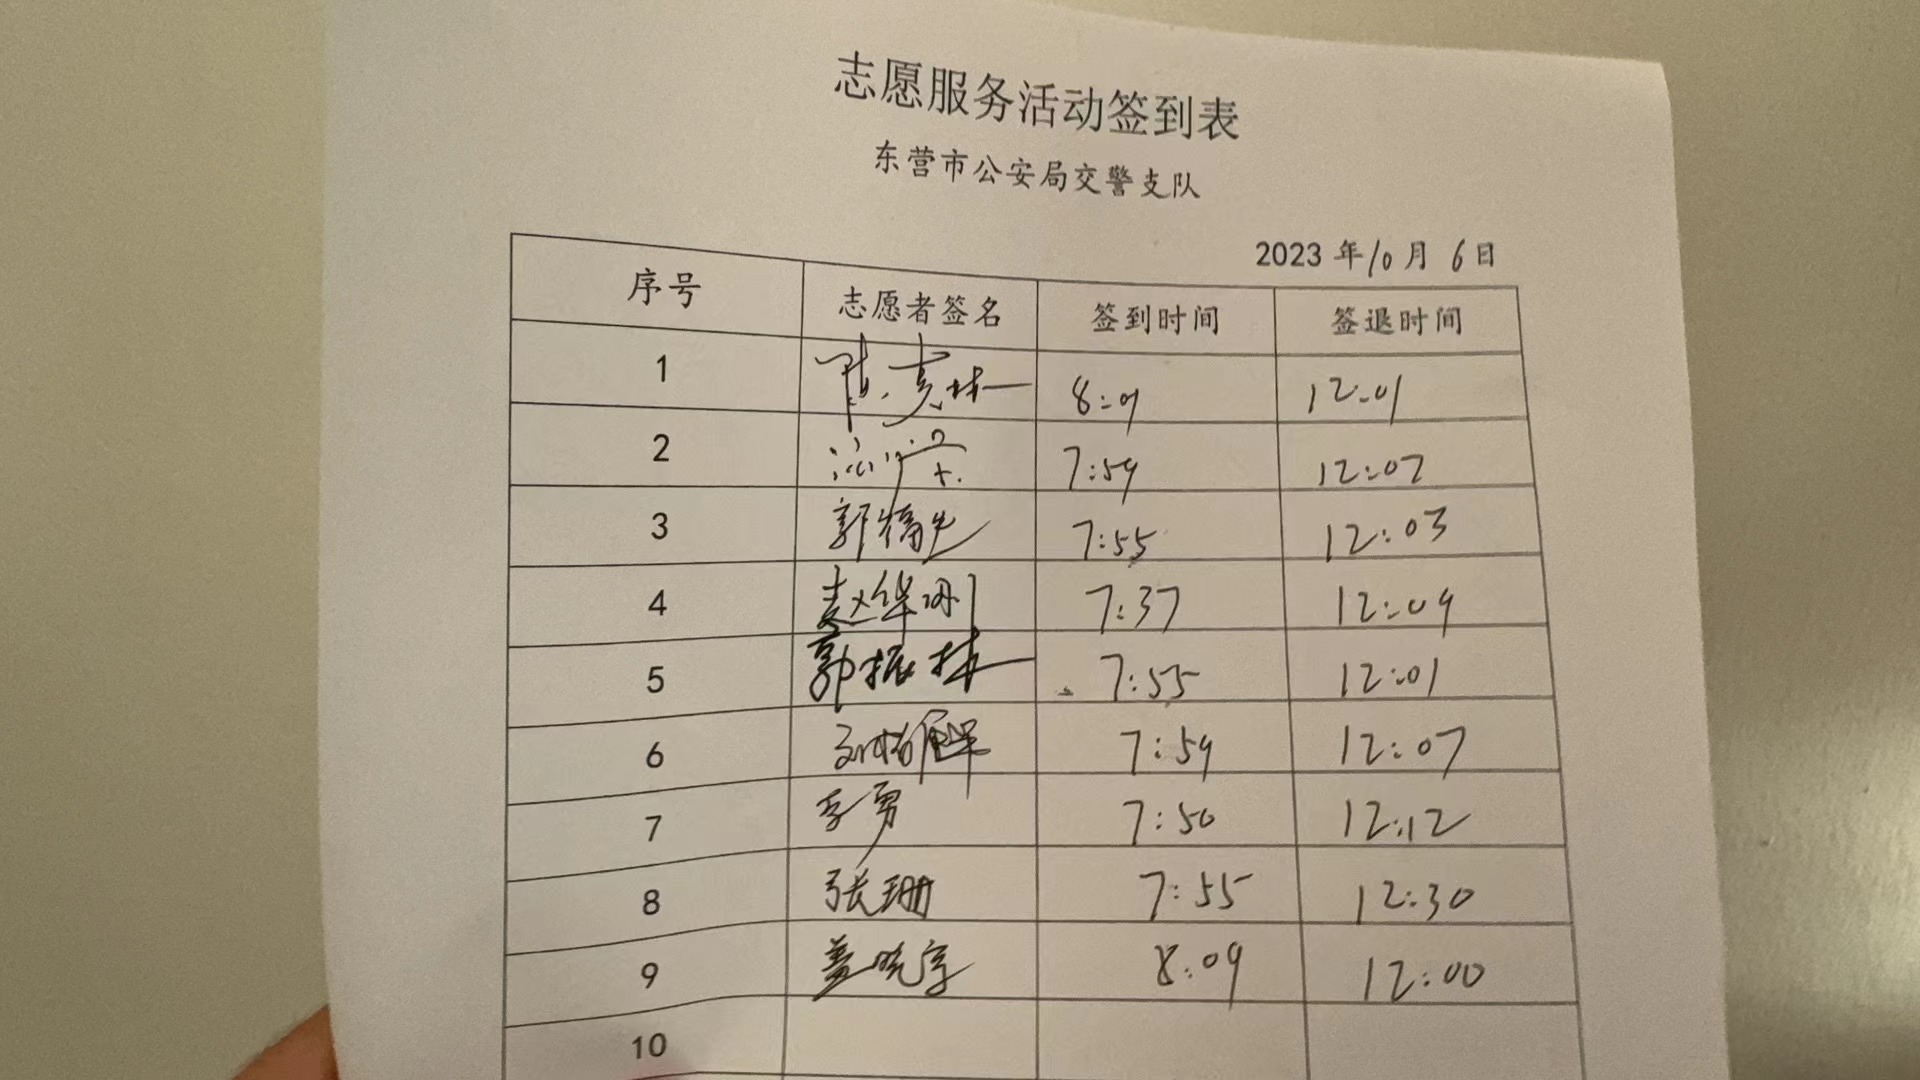 志愿服务活动签到表
东营市公安局交警支队
2023 年 10 月 6 日
序号 志愿者签名 签到时间 签退时间
1 12:01
2 7:59 12:02
3 郭 7:55 12:03
4 赵华刚 7:37 12:09
5 郭振林 7:55 12:01
6 7:59 12:07
7 李勇 7:50 12:12
8 张珊 7:55 12:30
9 盖晓宇 8:09 12:00
10